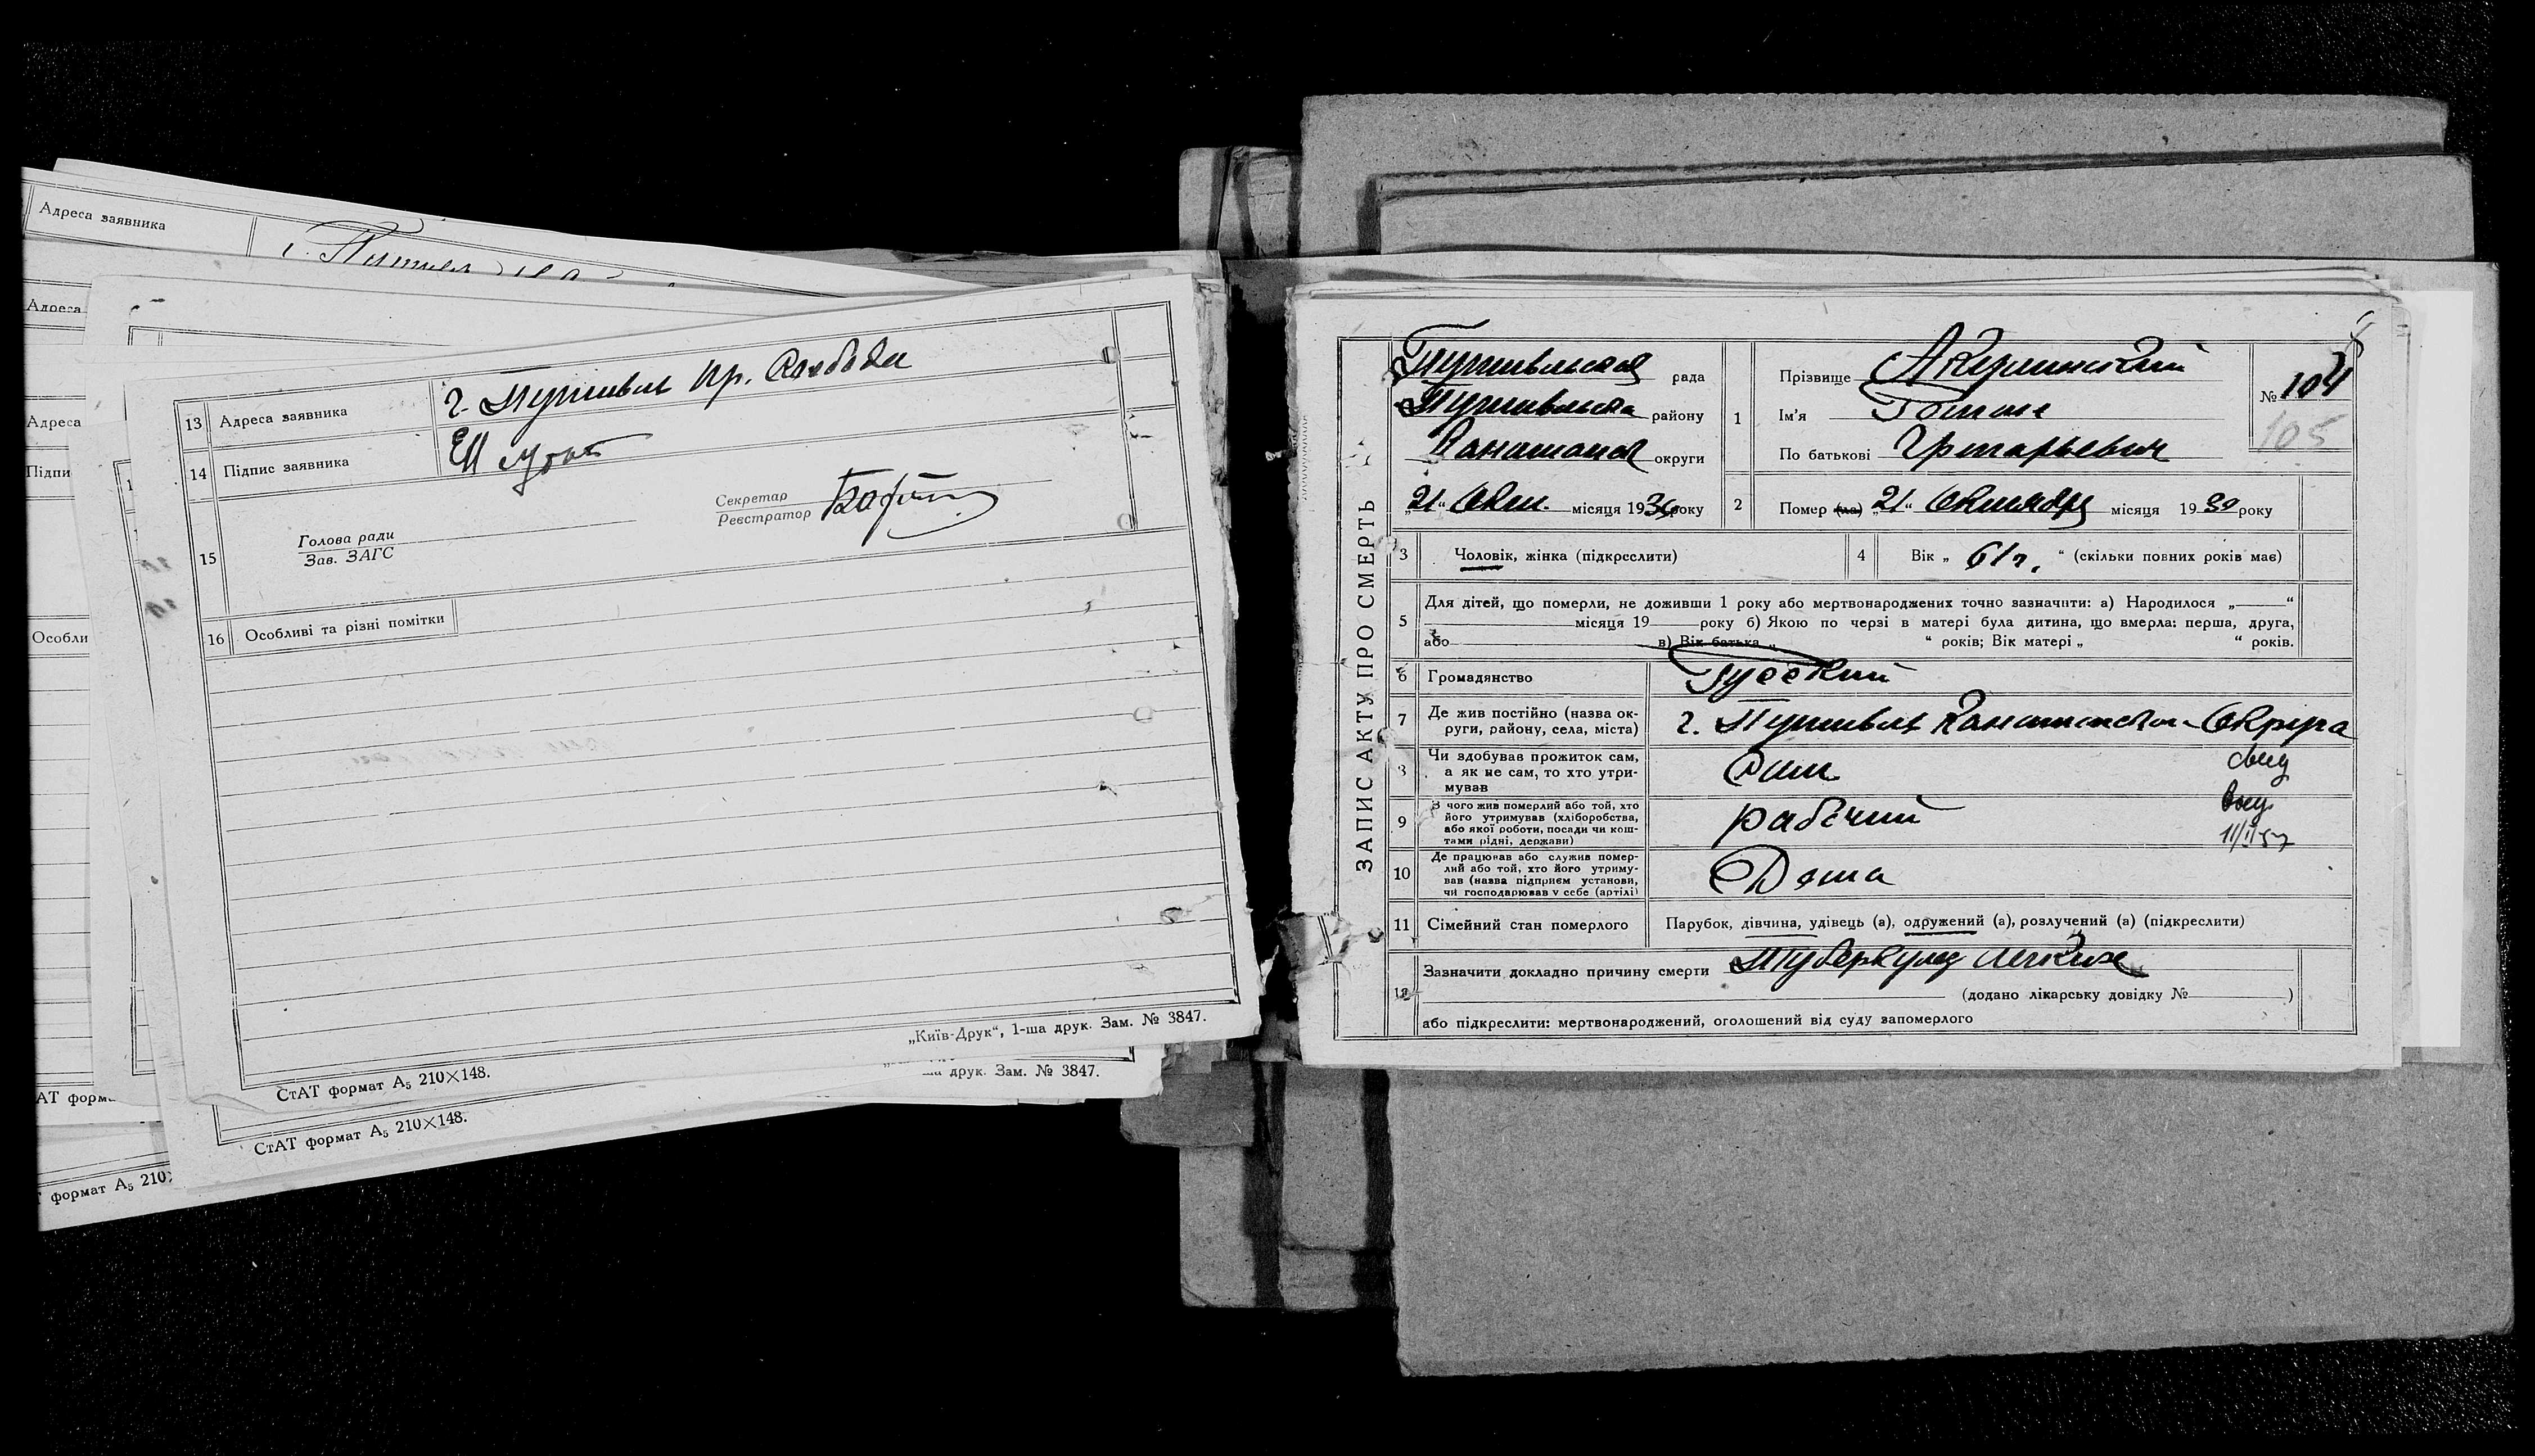 Адреса заявника
Адреса
Адреса
Підпи
Особли
13 Адреса заявника г. Путивль пр. Слобода
14 Підпис заявника
15 Голова ради
Зав. ЗАГС
Секретар
Реєстратор
16 Особливі та різні помітки
„Київ-Друк“, 1-ша друк. Зам. № 3847.
СтАТ формат А5 210×148.
друк. Зам. № 3847.
СтАТ формат А5 210×148.
формат А5 210
ЗАПИС АКТУ ПРО СМЕРТЬ
Путивльская рада
Путивльск району
округи
„21“ Окт. місяця 1930 року
1 Прізвище Акулинский
Ім'я
По батькові Григорьевич
№ 104
105
2 Помер (ла) „21“ Октября місяця 1930 року
3 Чоловік, жінка (підкреслити)
4 Вік „ 61 г. “ (скільки повних років має)
5 Для дітей, що померли, не доживши 1 року або мертвонароджених точно зазначити: а) Народилося „ “
місяця 19 року б) Якою по черзі в матері була дитина, що вмерла: перша, друга,
або в) Вік батька „ “ років; Вік матері „ “ років.
6 Громадянство Русский
7 Де жив постійно (назва ок-
руги, району, села, міста) г. Путивль Конотопской Округа
8 Чи здобував прожиток сам,
а як не сам, то хто утри-
мував Сам
9 З чого жив померлий або той, хто
його утримував (хліборобства,
або якої роботи, посади чи кош-
тами рідні, держави) рабочий
10 Де працював або служив помер-
лий або той, хто його утриму-
вав (назва підприєм установи,
чи господарював у себе (артілі) Дома
11 Сімейний стан померлого Парубок, дівчина, удівець (а), одружений (а), розлучений (а) (підкреслити)
12 Зазначити докладно причину смерти Туберкулез легких
(додано лікарську довідку № )
або підкреслити: мертвонароджений, оголошений від суду запомерлого